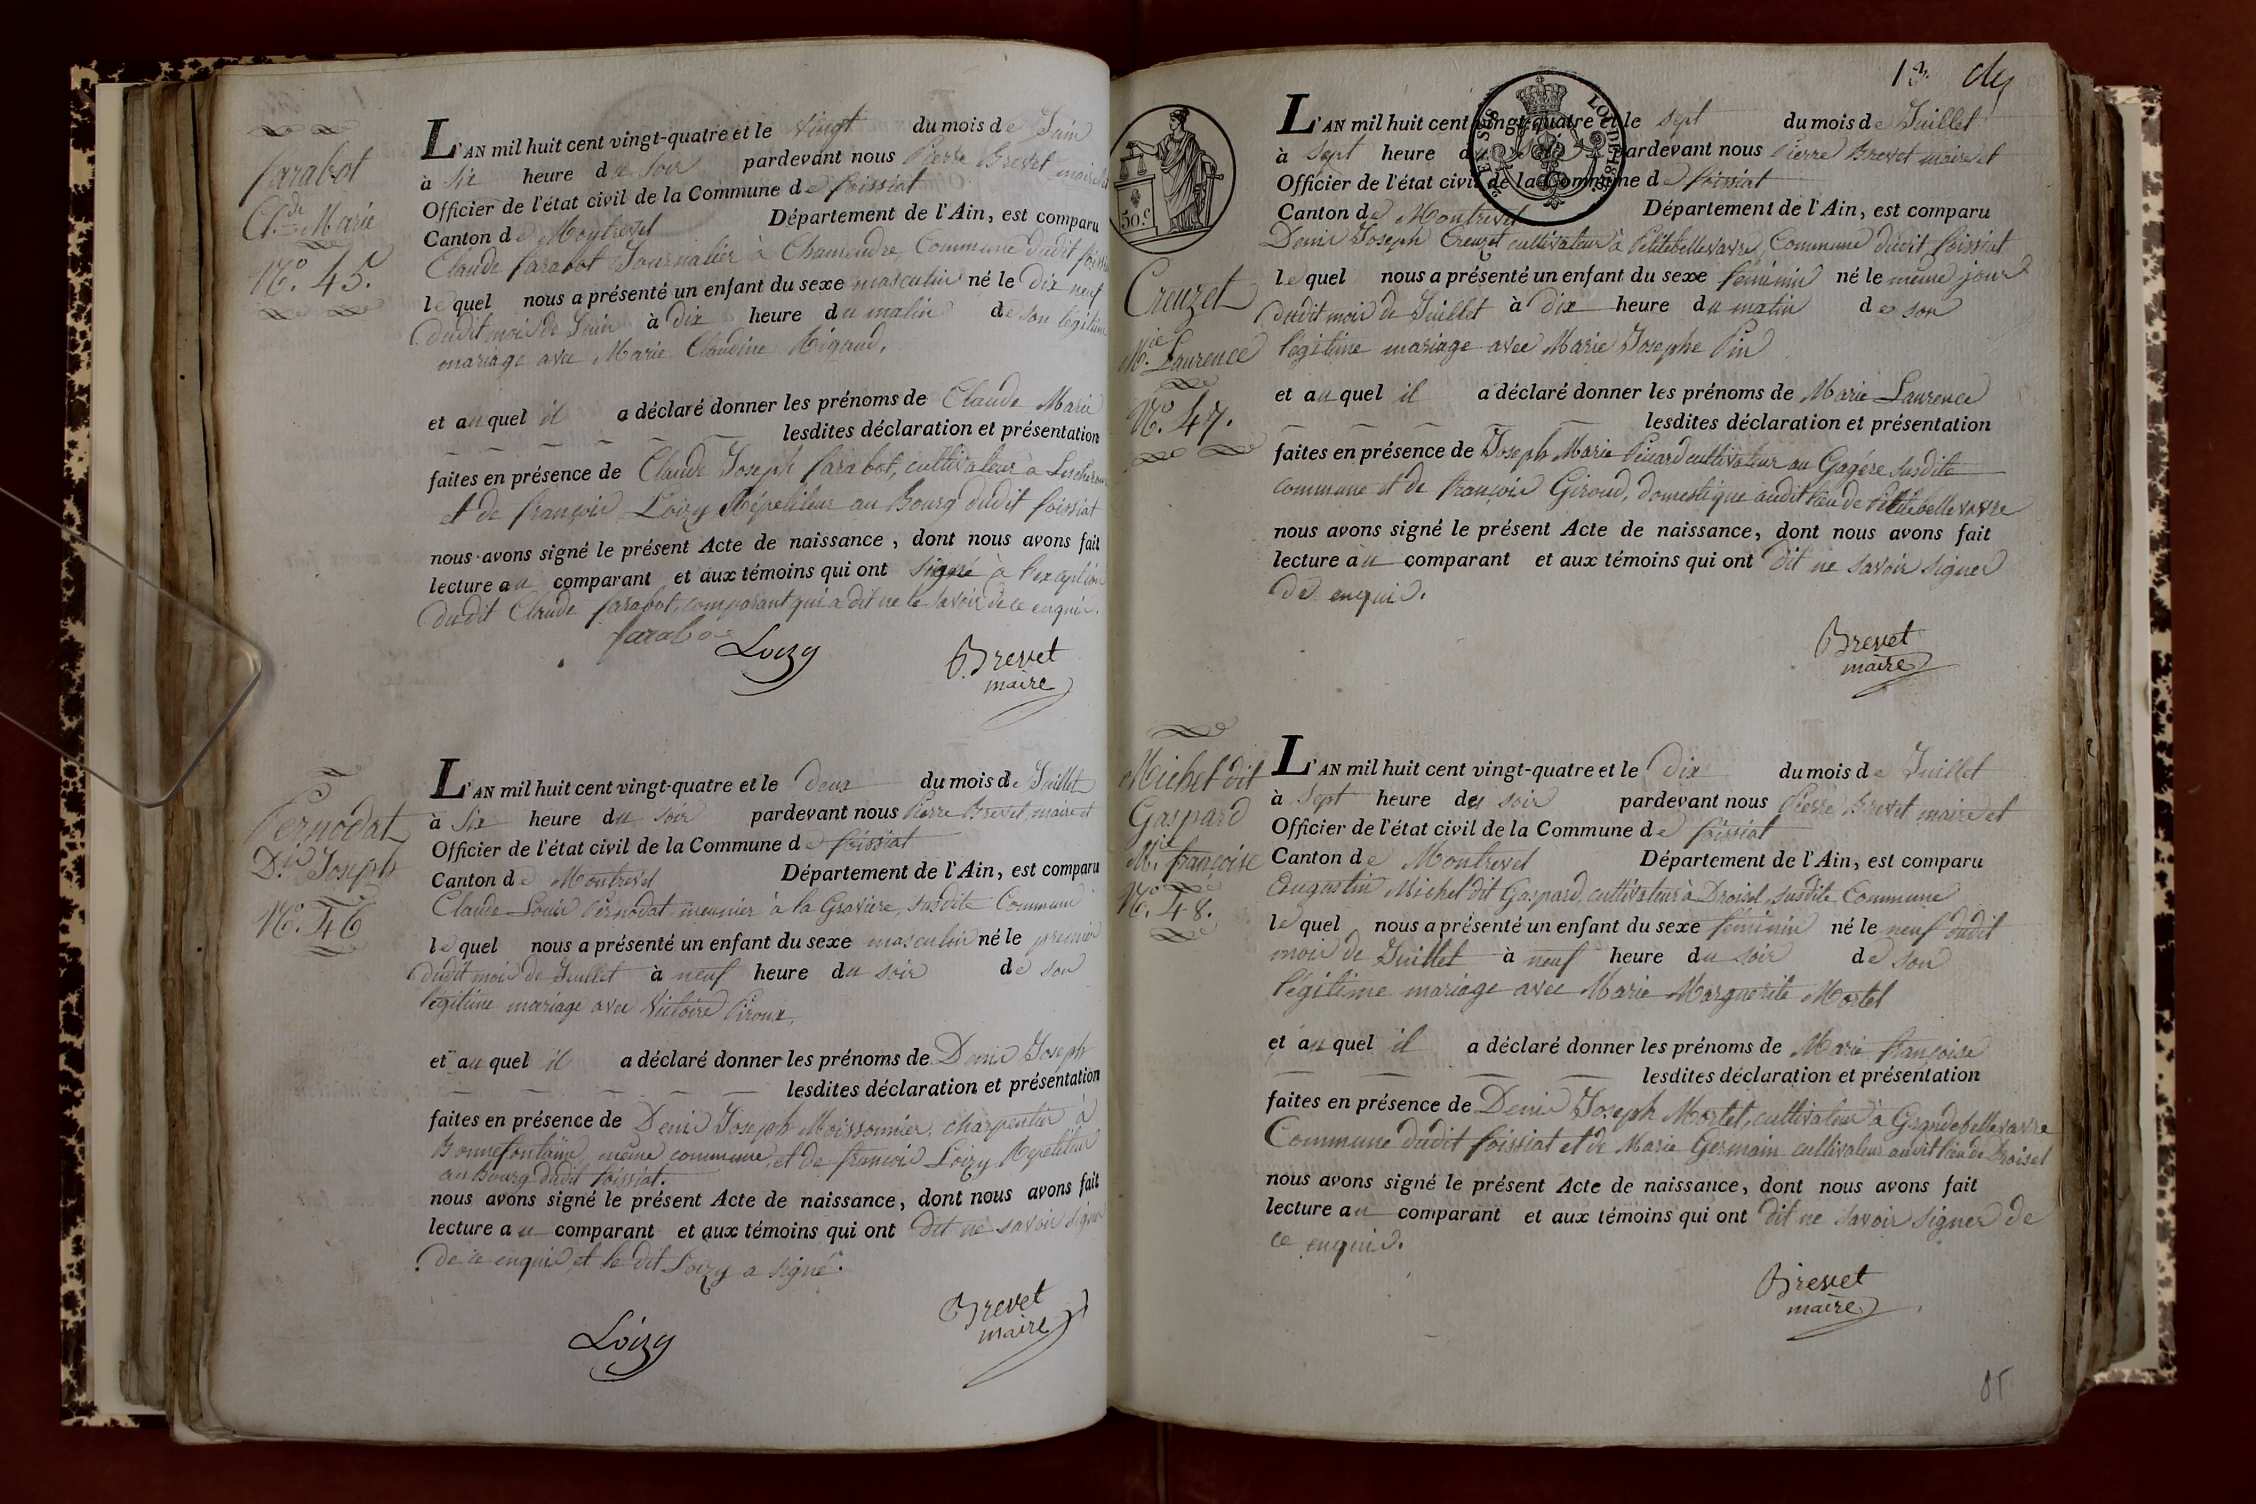 farabot
Cl.de Marie
N.o 45.
L'AN mil huit cent vingt-quatre et le vingt du mois de Juin
à Six heure du soir pardevant nous Pierre Brevet maire et
Officier de l'état civil de la Commune de foissiat
Canton de Montrevel Département de l'Ain, est comparu
Claude farabot Journalier à Chamendre, Commune dudit foissiat
lequel nous a présenté un enfant du sexe masculin né le dix neuf
dudit mois de Juin à dix heure du matin de son légitime
mariage avec Marie Claudine Rigaud,
et auquel il a déclaré donner les prénoms de Claude Marie
lesdites déclaration et présentation
faites en présence de Claude Joseph farabot, cultivateur à Lescheroux
et de françois Loizy Répétiteur au Bourg dudit foissiat
nous avons signé le présent Acte de naissance, dont nous avons fait
lecture au comparant et aux témoins qui ont signé à l'exception
dudit Claude farabot, comparant qui a dit ne le savoir de ce enquis.
farabo Loizy Brevet
maire
Pernodat
D.is Joseph
N.o 46
L'AN mil huit cent vingt-quatre et le deux du mois de Juillet
à Six heure du soir pardevant nous Pierre Brevet, maire et
Officier de l'état civil de la Commune de foissiat
Canton de Montrevel Département de l'Ain, est comparu
Claude Louis Pernodat meunier à la Gravière, susdite Commune
lequel nous a présenté un enfant du sexe masculin né le premier
dudit mois de Juillet à neuf heure du soir de son
légitime mariage avec Victoire Piroux,
et auquel il a déclaré donner les prénoms de Denis Joseph
lesdites déclaration et présentation
faites en présence de Denis Joseph Moissonnier, charpentier à
Bonnefontaine, même commune et de françois Loizy Repetiteur
au Bourg dudit foissiat.
nous avons signé le présent Acte de naissance, dont nous avons fait
lecture au comparant et aux témoins qui ont dit ne savoir signer
de ce enquis, et le dit Loizy a signé.
Loizy Brevet
maire
13
50 c.
LOI DE 1816
Creuzet
M.ie Laurence
N.o 47.
L'AN mil huit cent vingt-quatre et le sept du mois de Juillet
à sept heure du soir pardevant nous Pierre Brevet maire et
Officier de l'état civil de la Commune de foissiat
Canton de Montrevel Département de l'Ain, est comparu
Denis Joseph Creuzet cultivateur à Petitebellevavre, Commune dudit foissiat
lequel nous a présenté un enfant du sexe féminin né le même jour
dudit mois de Juillet à dix heure du matin de son
légitime mariage avec Marie Josephe Pin
et auquel il a déclaré donner les prénoms de Marie Laurence
lesdites déclaration et présentation
faites en présence de Joseph Marie Picard cultivateur au Gagère susdite
commune et de françois Giroud, domestique audit lieu de Petitebellevavre
nous avons signé le présent Acte de naissance, dont nous avons fait
lecture au comparant et aux témoins qui ont dit ne savoir signer
de enquis.
Brevet
maire
Michel dit
Gaspard
M.ie françoise
N.o 48.
L'AN mil huit cent vingt-quatre et le dix du mois de Juillet
à Sept heure du soir pardevant nous Pierre Brevet maire et
Officier de l'état civil de la Commune de foissiat
Canton de Montrevel Département de l'Ain, est comparu
Augustin Michel dit Gaspard, cultivateur à Droisel susdite Commune
lequel nous a présenté un enfant du sexe féminin né le neuf dudit
mois de Juillet à neuf heure du soir de son
légitime mariage avec Marie Marguerite Mortel
et auquel il a déclaré donner les prénoms de Marie françoise
lesdites déclaration et présentation
faites en présence de Denis Joseph Mortel, cultivateur à Grandebellevavre
Commune dudit foissiat et de Marie Germain cultivateur audit lieu de Droisel
nous avons signé le présent Acte de naissance, dont nous avons fait
lecture au comparant et aux témoins qui ont dit ne savoir signer de
ce enquis.
Brevet
maire
85